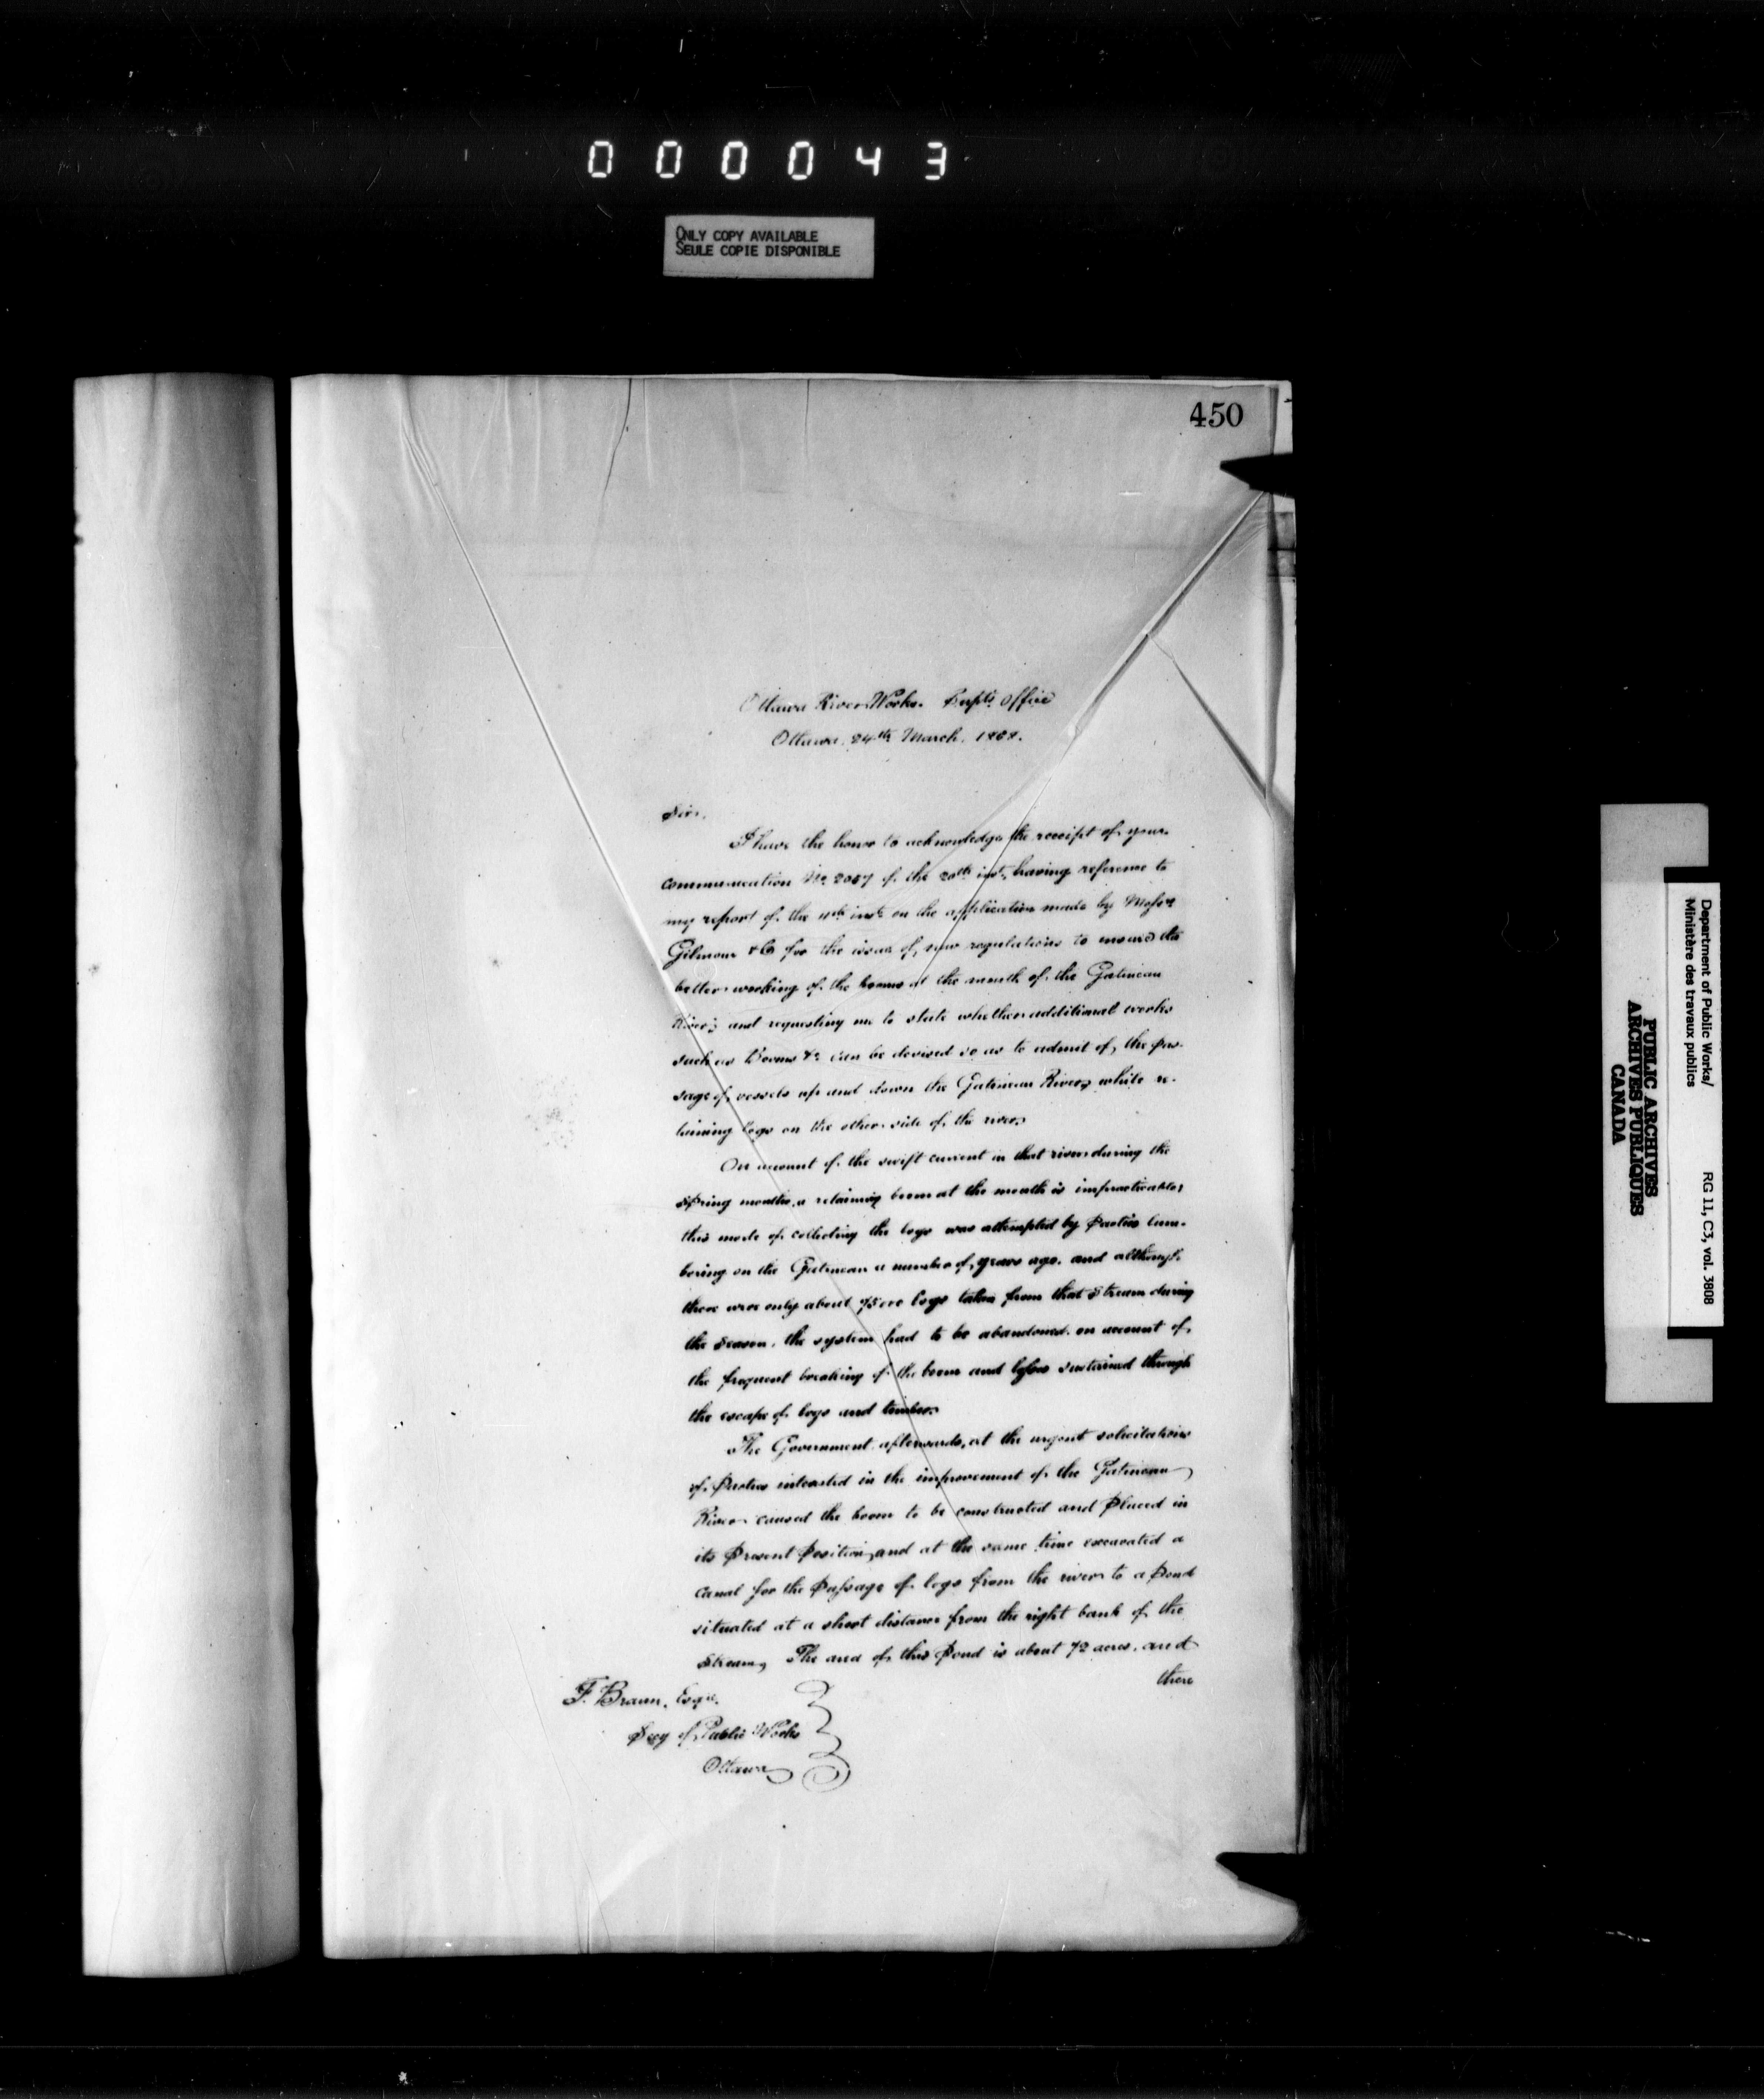 000043
ONLY COPY AVAILABLE
SEULE COPIE DISPONIBLE
450
Ottawa River Works. Supt's Office
Ottawa, 24th March, 1868.
Sir,
I have the honor to acknowledge the receipt of your
communication No. 2057 of the 20th inst, having reference to
my report of the 11th inst on the application made by Messrs
Gilmour & Co for the issue of new regulations to ensure the
better working of the booms at the mouth of the Gatineau
River; and requesting me to state whether additional works
such as Booms &c can be devised so as to admit of the pas-
sage of vessels up and down the Gatineau River, while re-
taining logs on the other side of the river,
On account of the swift current in that river during the
Spring months, a retaining boom at the mouth is impracticable;
this mode of collecting the logs was attempted by parties lum-
bering on the Gatineau a number of years ago, and although
there were only about 75000 logs taken from that Stream during
the Season, the system had to be abandoned, on account of
the frequent breaking of the boom and losses sustained through
the escape of logs and timber.
The Government afterwards, at the urgent solicitations
of parties interested in the improvement of the Gatineau
River caused the boom to be constructed and placed in
its present position, and at the same time excavated a
canal for the passage of logs from the river to a pond
situated at a short distance from the right bank of the
Stream. The area of this pond is about 72 acres, and
there
F. Braun, Esqre.
Secy of Public Works
Ottawa
Department of Public Works/
Ministère des travaux publics
RG 11, C3, vol. 3808
PUBLIC ARCHIVES
ARCHIVES PUBLIQUES
CANADA